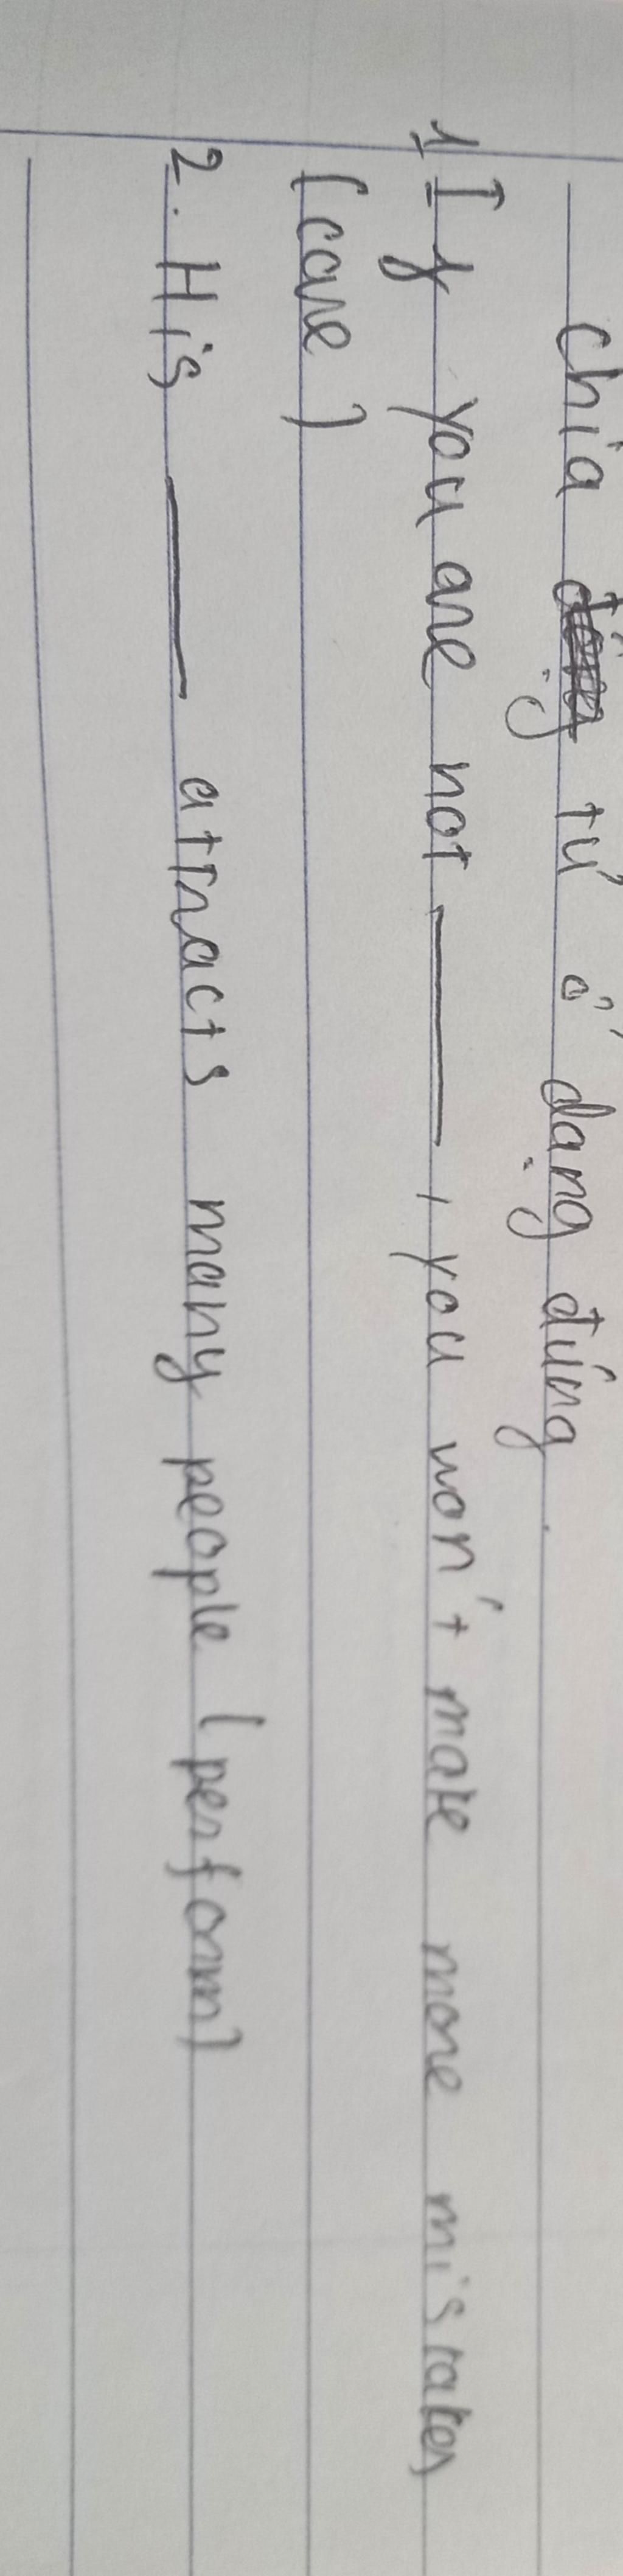 chia từ ở dạng đúng.
1, If you are not ______, you won't make more mistakes
(care)
2. His ______ attracts many people (perform)